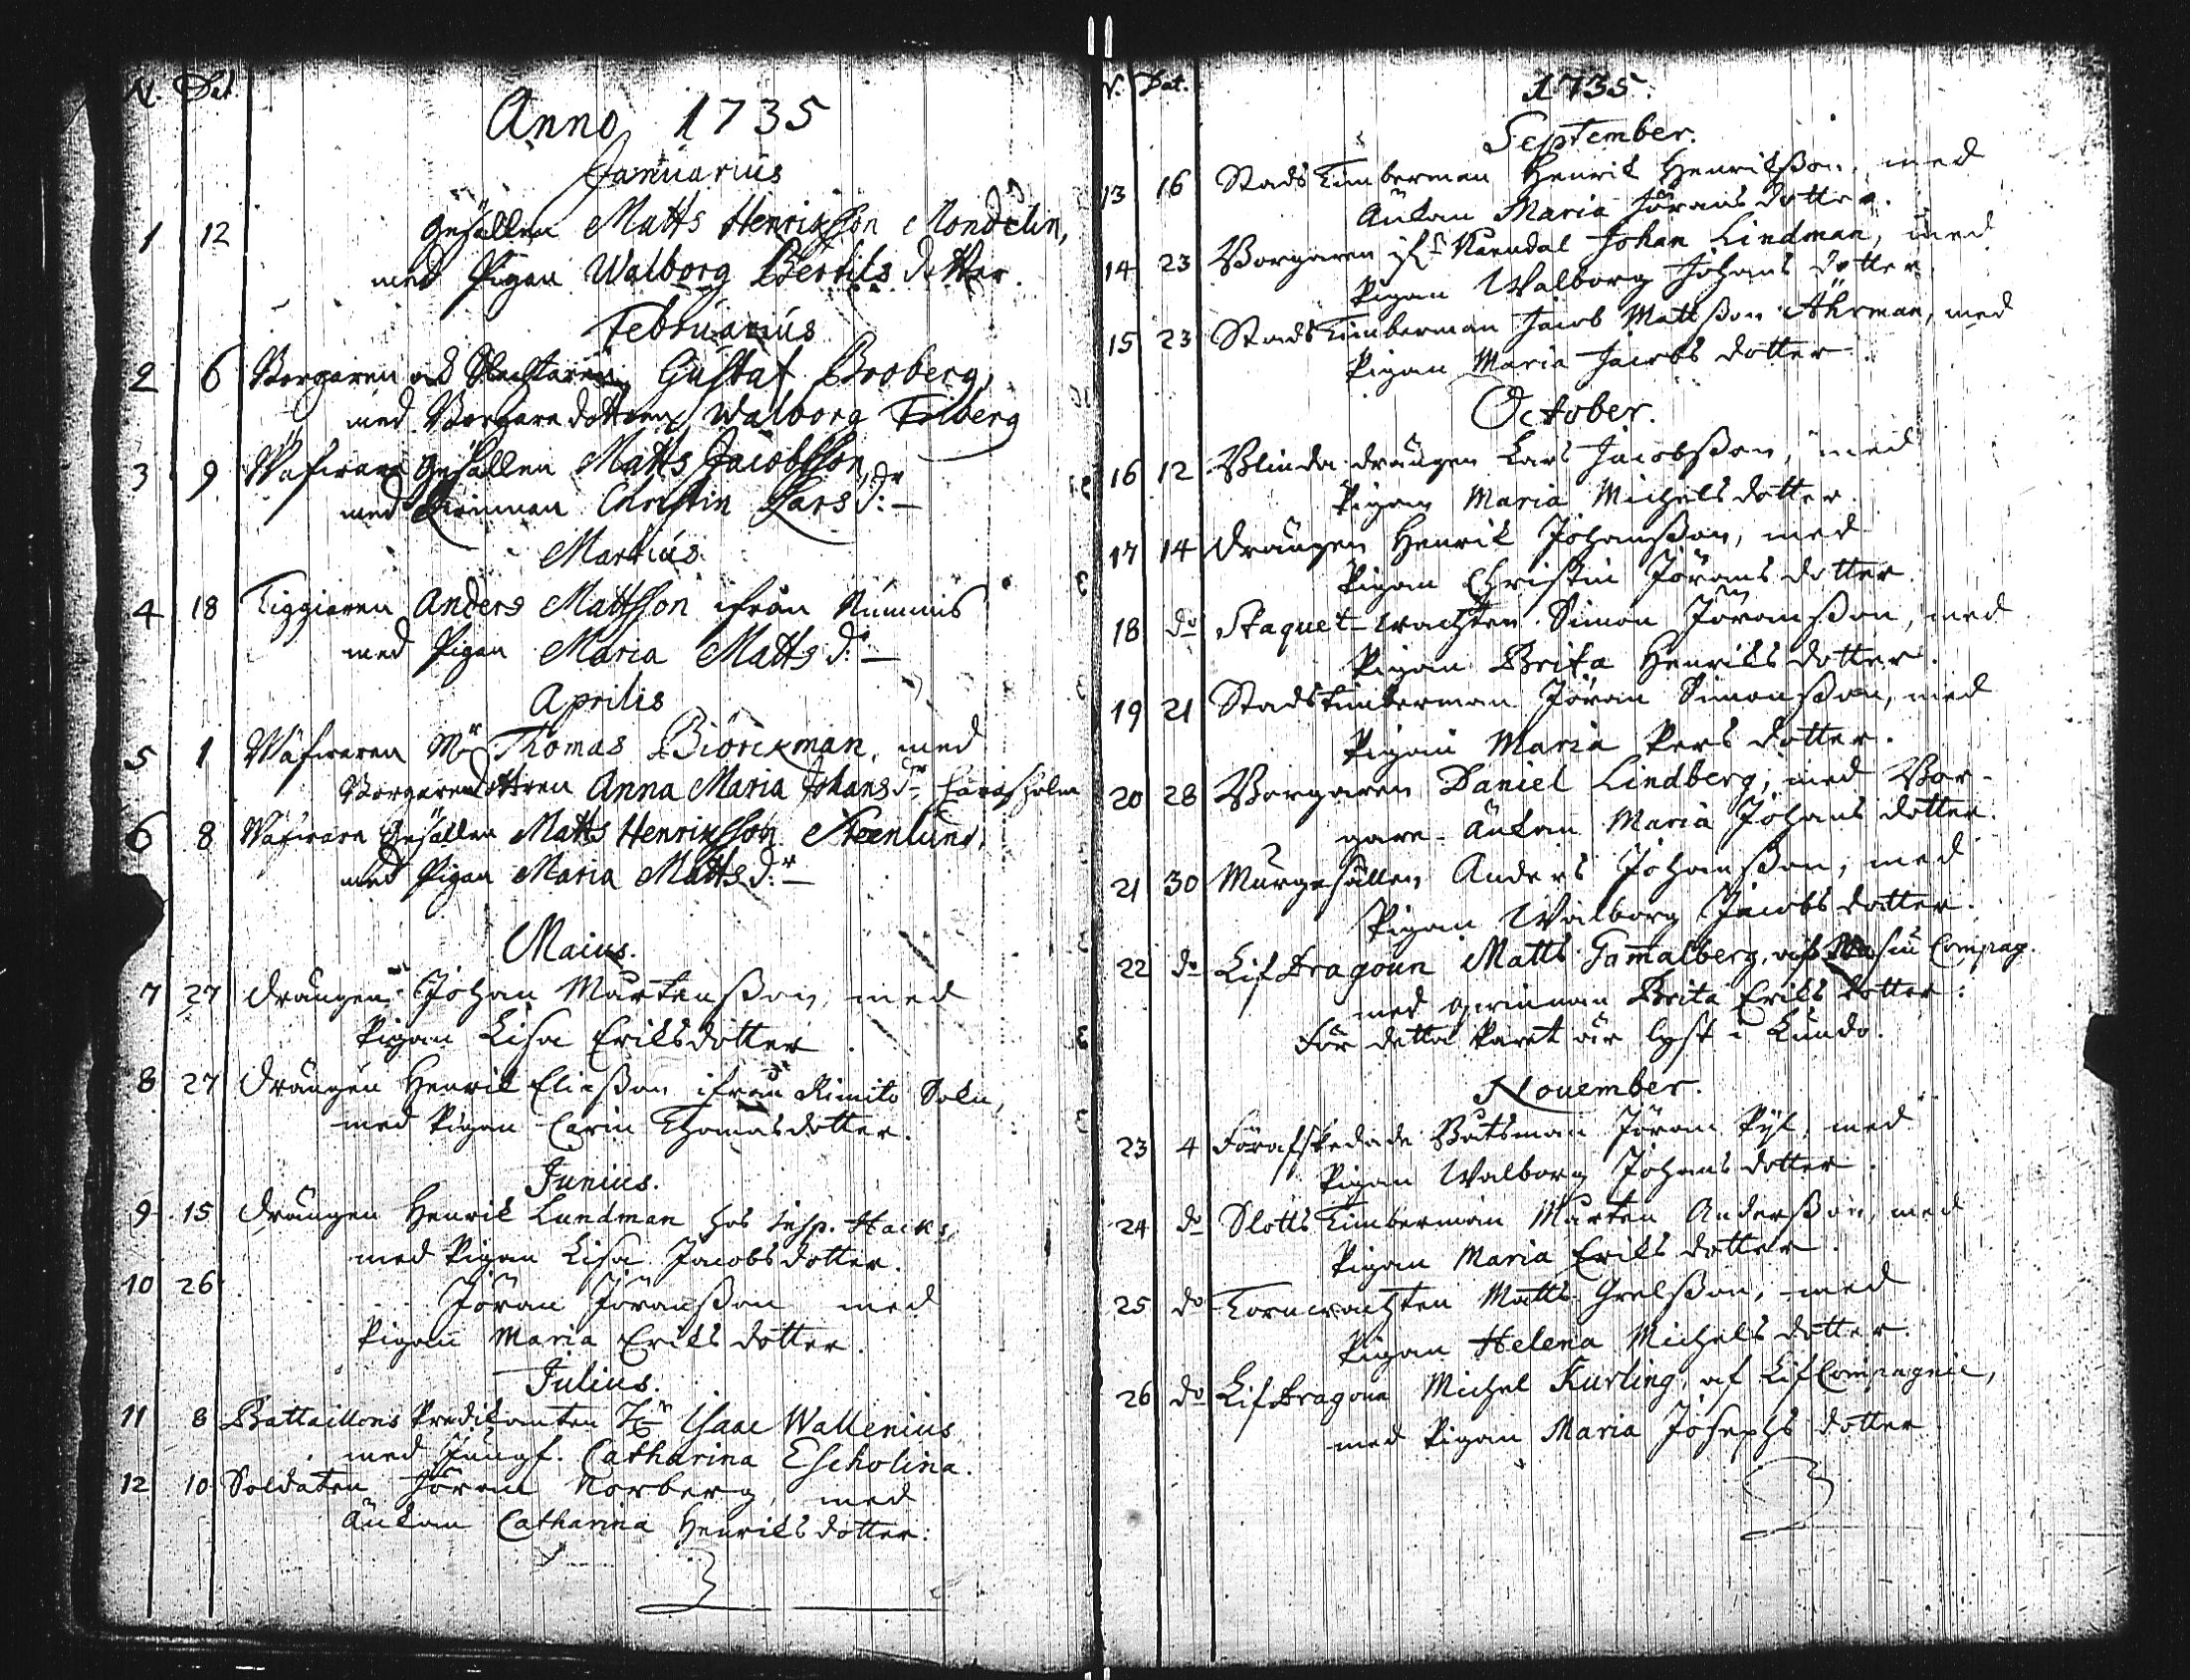 N. Dat
Anno 1735
Januarius
1 12 Gesällen Matts Henriksson Mondelin,
med Pigan Walborg Bertils dotter.
Februarius
2 6 Borgaren och Slachtaren Gustaf Broberg,
med Borgare dottren Walborg Folberg
3 9 Wäfware Gesällen Matts Jacobsson,
med Qwinnan Christin Lars dr. —
Martius
4 18 Tiggiaren Anders Mattsson ifrån Nummis
med Pigan Maria Matts dr. —
Aprilis
5 1 Wäfwaren Mr Thomas Biörckman, med
Borgaredottren Anna Maria Johans dr
6 8 Wäfware Gesällen Matts Henriksson Steenlund,
med Pigan Maria Matts dr. —
Maius.
7 27 Drängen Johan Mårtensson, med
Pigan Lisa Eriksdotter.
8 27 Drängen Henrik Eliesson ifrån Rimito Sokn,
med Pigan Carin Thomasdotter.
Junius.
9 15 Drängen Henrik Lundman hos Insp. Hacks,
med Pigan Lisa Jacobsdotter.
10 26 Jöran Jöransson med
Pigan Maria Eriks dotter.
Julius.
11 8 Battaillons Predikanten Hr Isaac Wallenius
med Jungf. Catharina Escholina.
12 10 Soldaten Jöran Norberg, med
Änkan Catharina Henriks dotter.
N. Dat.
1735.
September.
13 16 Stads Timberman Henrik Henriksson, med
Änkan Maria Jörans dotter.
14 23 Borgaren Johan Lindman, med
Pigan Walborg Johans dotter.
15 23 Stads Timberman Jacob Mattsson Åkerman, med
Pigan Maria Jacobs dotter.
October.
16 12 Blinda drängen Lars Jacobsson, med
Pigan Maria Michels dotter.
17 14 Drängen Henrik Johansson, med
Pigan Christin Jörans dotter.
18 do Staquet-wachten Simon Jöransson, med
Pigan Brita Henriks dotter.
19 21 Stadstimberman Jöran Simonsson, med
Pigan Maria Pers dotter.
20 28 Borgaren Daniel Lindberg, med Bor-
gare-Änkan Maria Johans dotter.
21 30 Murgesällen Anders Johansson, med
Pigan Walborg Jacobs dotter.
22 do Lif Dragoun Matts Gamalberg, af Compag.
med qwinnan Brita Eriks dotter:
För detta Paret är lyst i Lundo.
November.
23 4 Förafskedade Båtsman Jöran Pyl, med
Pigan Walborg Johans dotter.
24 do Slotts Timberman Mårten Andersson, med
Pigan Maria Eriks dotter.
25 do Tornwachten Matts Grelsson, med
Pigan Helena Michels dotter.
26 do Lif Dragoun Michel Kurling, af Lif Compagnie,
med Pigan Maria Josephs dotter